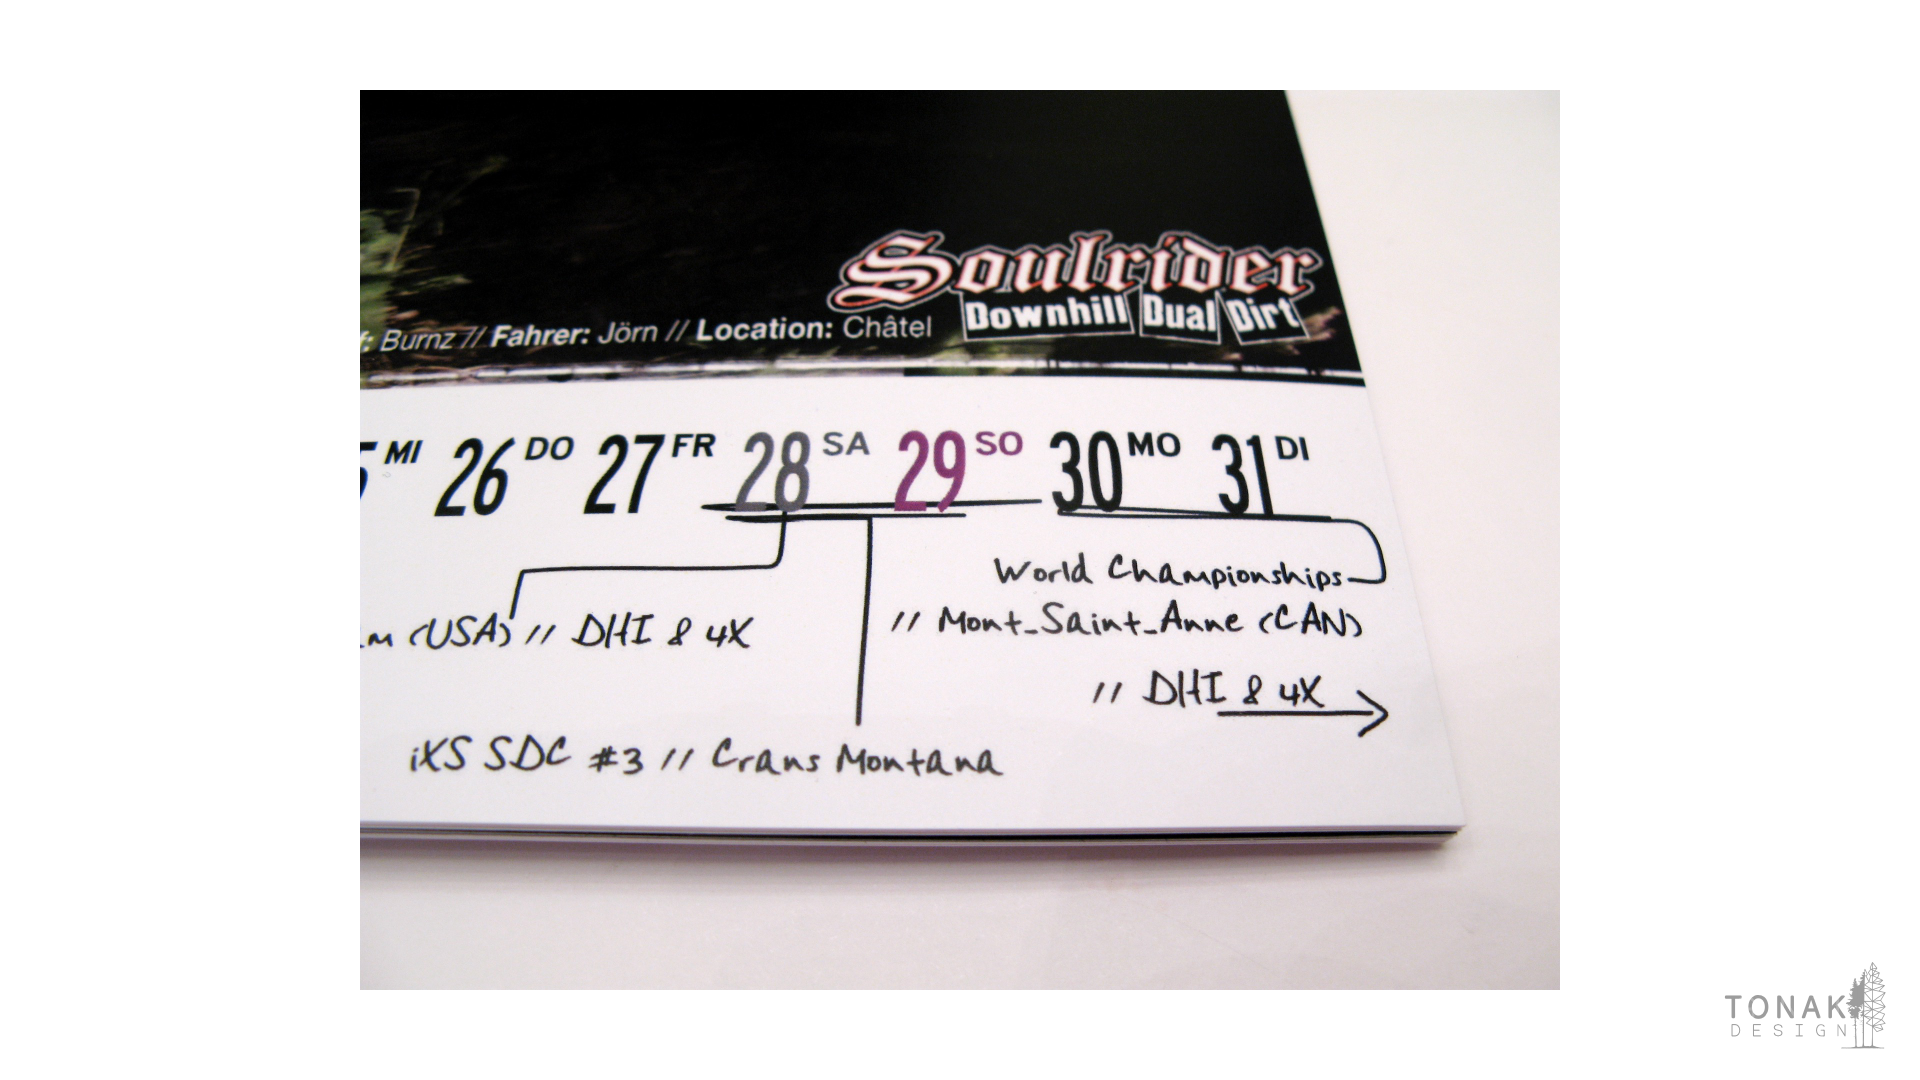 Soulrider
Downhill Dual Dirt
Burnz // Fahrer: Jörn // Location: Châtel
MI 26 DO 27 FR 28 SA 29 SO 30 MO 31 DI
World Championships
(USA) // DHI & 4X
// Mont-Saint-Anne (CAN)
// DHI & 4X
iXS SDC #3 // Crans Montana
TONAK
DESIGN